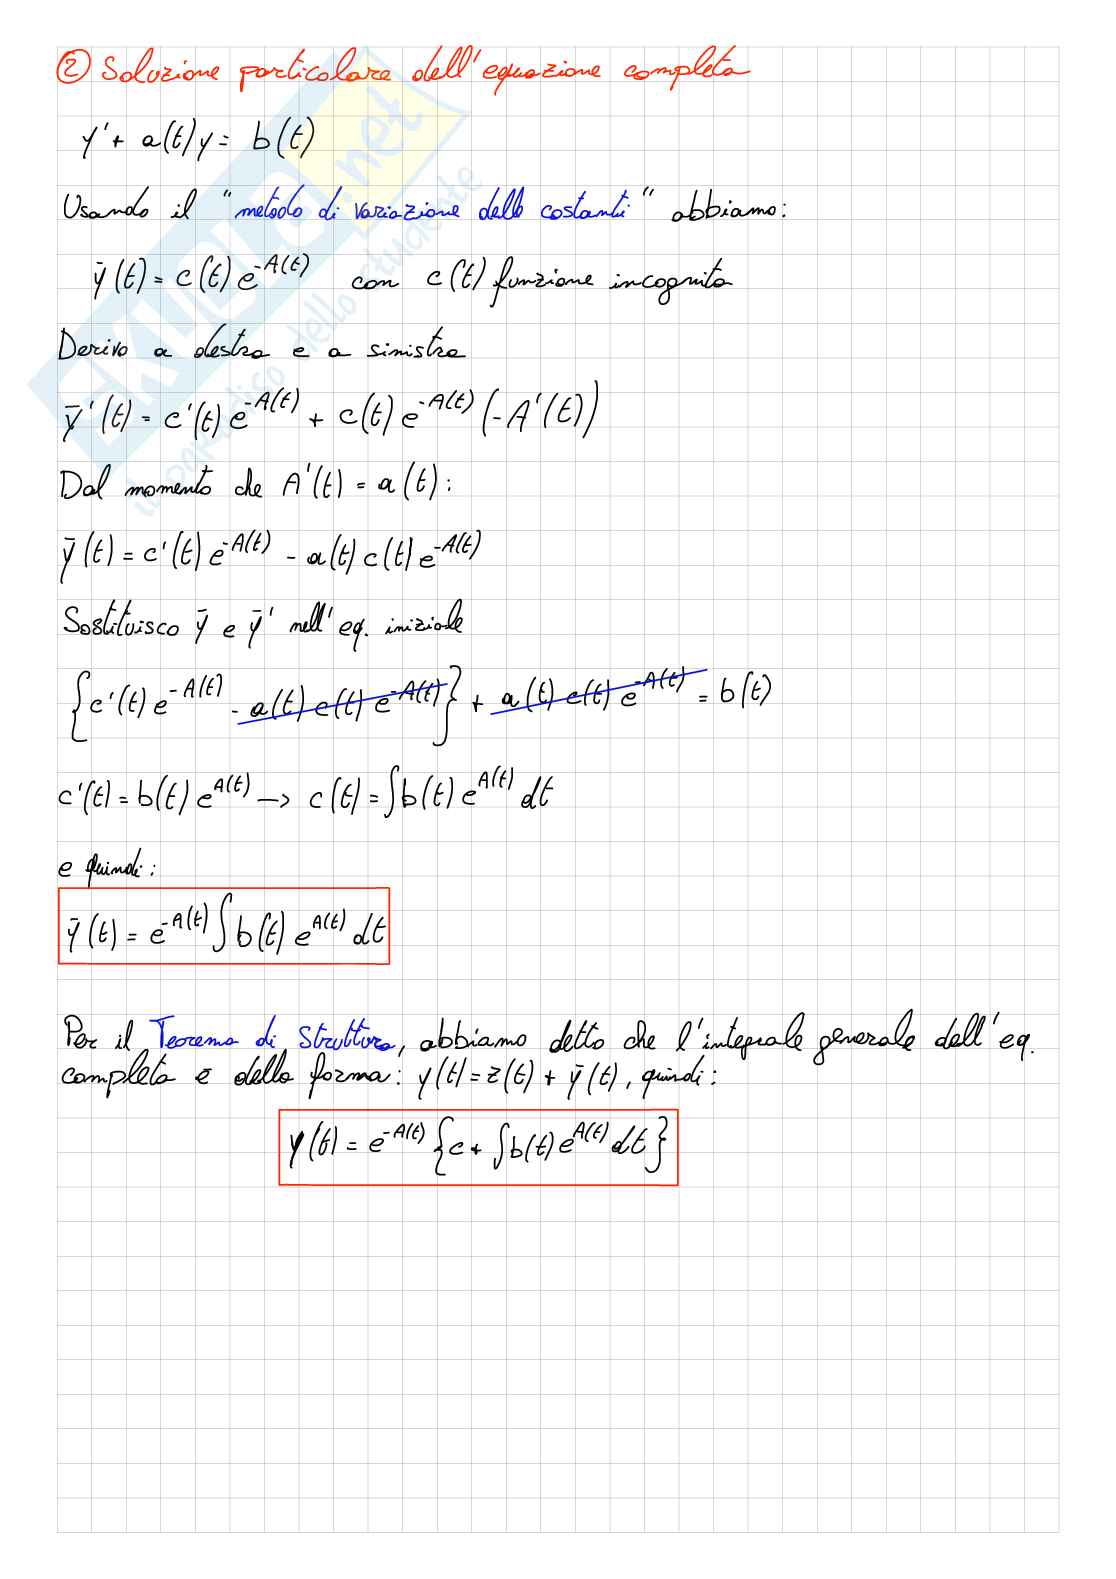 ② Soluzione particolare dell'equazione completa
y' + a(t)y = b(t)
Usando il "metodo di variazione delle costanti" abbiamo:
ȳ(t) = c(t) e^{-A(t)} con c(t) funzione incognita
Derivo a destra e a sinistra
ȳ'(t) = c'(t) e^{-A(t)} + c(t) e^{-A(t)} (-A'(t))
Dal momento che A'(t) = a(t):
ȳ'(t) = c'(t) e^{-A(t)} - a(t) c(t) e^{-A(t)}
Sostituisco ȳ e ȳ' nell'eq. iniziale
{c'(t) e^{-A(t)} - a(t) c(t) e^{-A(t)}} + a(t) c(t) e^{-A(t)} = b(t)
c'(t) = b(t) e^{A(t)} → c(t) = ∫b(t) e^{A(t)} dt
e quindi:
ȳ(t) = e^{-A(t)} ∫b(t) e^{A(t)} dt
Per il Teorema di Struttura, abbiamo detto che l'integrale generale dell'eq.
completa è della forma: y(t) = z(t) + ȳ(t), quindi:
y(t) = e^{-A(t)} {c + ∫b(t) e^{A(t)} dt}
skuola.net
il paradiso dello studente